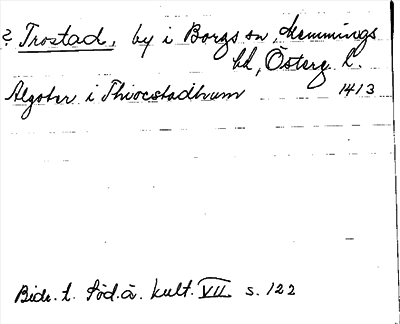 ? Trostad, by i Borgs sn, Memmings
hd, Österg. l.
Algoter i Thiocstadhum 1413
Bidr. t. Söd.a. kult. VII s. 122